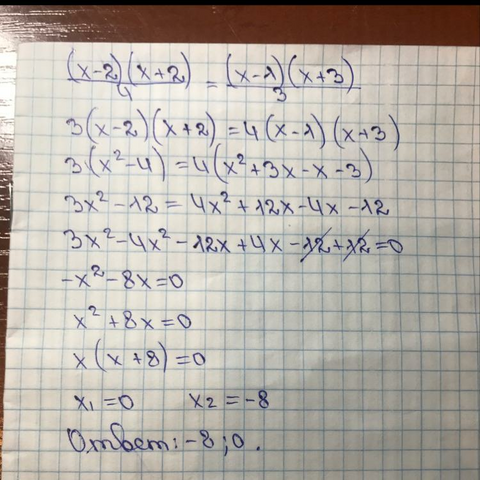 (x-2)(x+2)/4 = (x-1)(x+3)/3
3(x-2)(x+2)=4(x-1)(x+3)
3(x²-4)=4(x²+3x-x-3)
3x²-12=4x²+12x-4x-12
3x²-4x²-12x+4x-12+12=0
-x²-8x=0
x²+8x=0
x(x+8)=0
x₁=0 x₂=-8
Ответ: -8; 0.